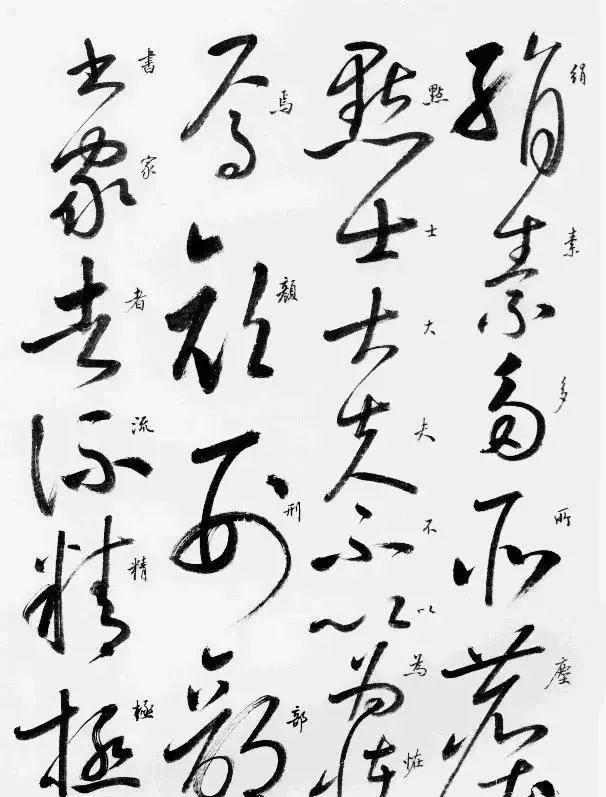 絹素多所塵
點士大夫不以為怪
焉顏刑部
書家者流精極